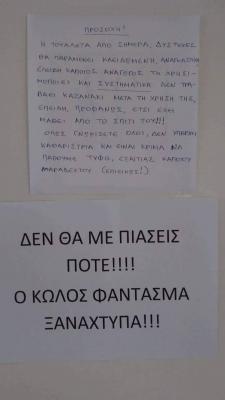 ΠΡΟΣΟΧΗ!
Η ΤΟΥΑΛΕΤΑ ΑΠΟ ΣΗΜΕΡΑ, ΔΥΣΤΥΧΩΣ
ΘΑ ΠΑΡΑΜΕΝΕΙ ΚΛΕΙΔΩΜΕΝΗ,
ΕΠΕΙΔΗ ΚΑΠΟΙΟΣ ΑΝΑΓΩΓΟΣ ΤΗ ΧΡΗΣΙ-
ΜΟΠΟΙΕΙ ΚΑΙ ΣΥΣΤΗΜΑΤΙΚΑ ΔΕΝ ΤΡΑ-
ΒΑΕΙ ΚΑΖΑΝΑΚΙ ΜΕΤΑ ΤΗ ΧΡΗΣΗ ΤΗΣ,
ΕΠΕΙΔΗ, ΠΡΟΦΑΝΩΣ, ΕΤΣΙ ΕΧΕΙ
ΜΑΘΕΙ ΑΠΟ ΤΟ ΣΠΙΤΙ ΤΟΥ!!!
ΟΠΩΣ ΓΝΩΡΙΖΕΤΕ ΟΛΟΙ, ΔΕΝ ΥΠΑΡΧΕΙ
ΚΑΘΑΡΙΣΤΡΙΑ ΚΑΙ ΕΙΝΑΙ ΚΡΙΜΑ ΝΑ
ΠΑΘΟΥΜΕ ΤΥΦΟ, ΕΞΑΙΤΙΑΣ ΚΑΠΟΙΟΥ
(ΕΠΙΕΙΚΩΣ!)
ΔΕΝ ΘΑ ΜΕ ΠΙΑΣΕΙΣ
ΠΟΤΕ!!!!
Ο ΚΩΛΟΣ ΦΑΝΤΑΣΜΑ
ΞΑΝΑΧΤΥΠΑ!!!